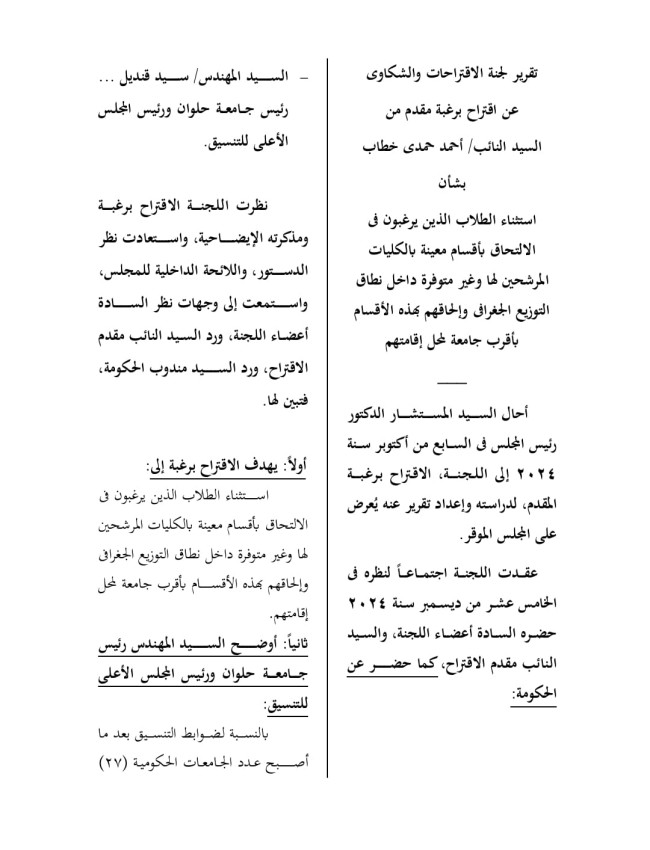 تقرير لجنة الاقتراحات والشكاوى
عن اقتراح برغبة مقدم من
السيد النائب/ أحمد حمدى خطاب
بشأن
استثناء الطلاب الذين يرغبون فى
الالتحاق بأقسام معينة بالكليات
المرشحين لها وغير متوفرة داخل نطاق
التوزيع الجغرافى وإلحاقهم بهذه الأقسام
بأقرب جامعة لمحل إقامتهم
أحال السيد المستشار الدكتور
رئيس المجلس فى السابع من أكتوبر سنة
٢٠٢٤ إلى اللجنة، الاقتراح برغبة
المقدم، لدراسته وإعداد تقرير عنه يُعرض
على المجلس الموقر.
عقدت اللجنة اجتماعاً لنظره فى
الخامس عشر من ديسمبر سنة ٢٠٢٤
حضره السادة أعضاء اللجنة، والسيد
النائب مقدم الاقتراح، كما حضر عن
الحكومة:
– السيد المهندس/ سيد قنديل ...
رئيس جامعة حلوان ورئيس المجلس
الأعلى للتنسيق.
نظرت اللجنة الاقتراح برغبة
ومذكرته الإيضاحية، واستعادت نظر
الدستور، واللائحة الداخلية للمجلس،
واستمعت إلى وجهات نظر السادة
أعضاء اللجنة، ورد السيد النائب مقدم
الاقتراح، ورد السيد مندوب الحكومة،
فتبين لها.
أولاً: يهدف الاقتراح برغبة إلى:
استثناء الطلاب الذين يرغبون فى
الالتحاق بأقسام معينة بالكليات المرشحين
لها وغير متوفرة داخل نطاق التوزيع الجغرافى
وإلحاقهم بهذه الأقسام بأقرب جامعة لمحل
إقامتهم.
ثانياً: أوضح السيد المهندس رئيس
جامعة حلوان ورئيس المجلس الأعلى
للتنسيق:
بالنسبة لضوابط التنسيق بعد ما
أصبح عدد الجامعات الحكومية (٢٧)